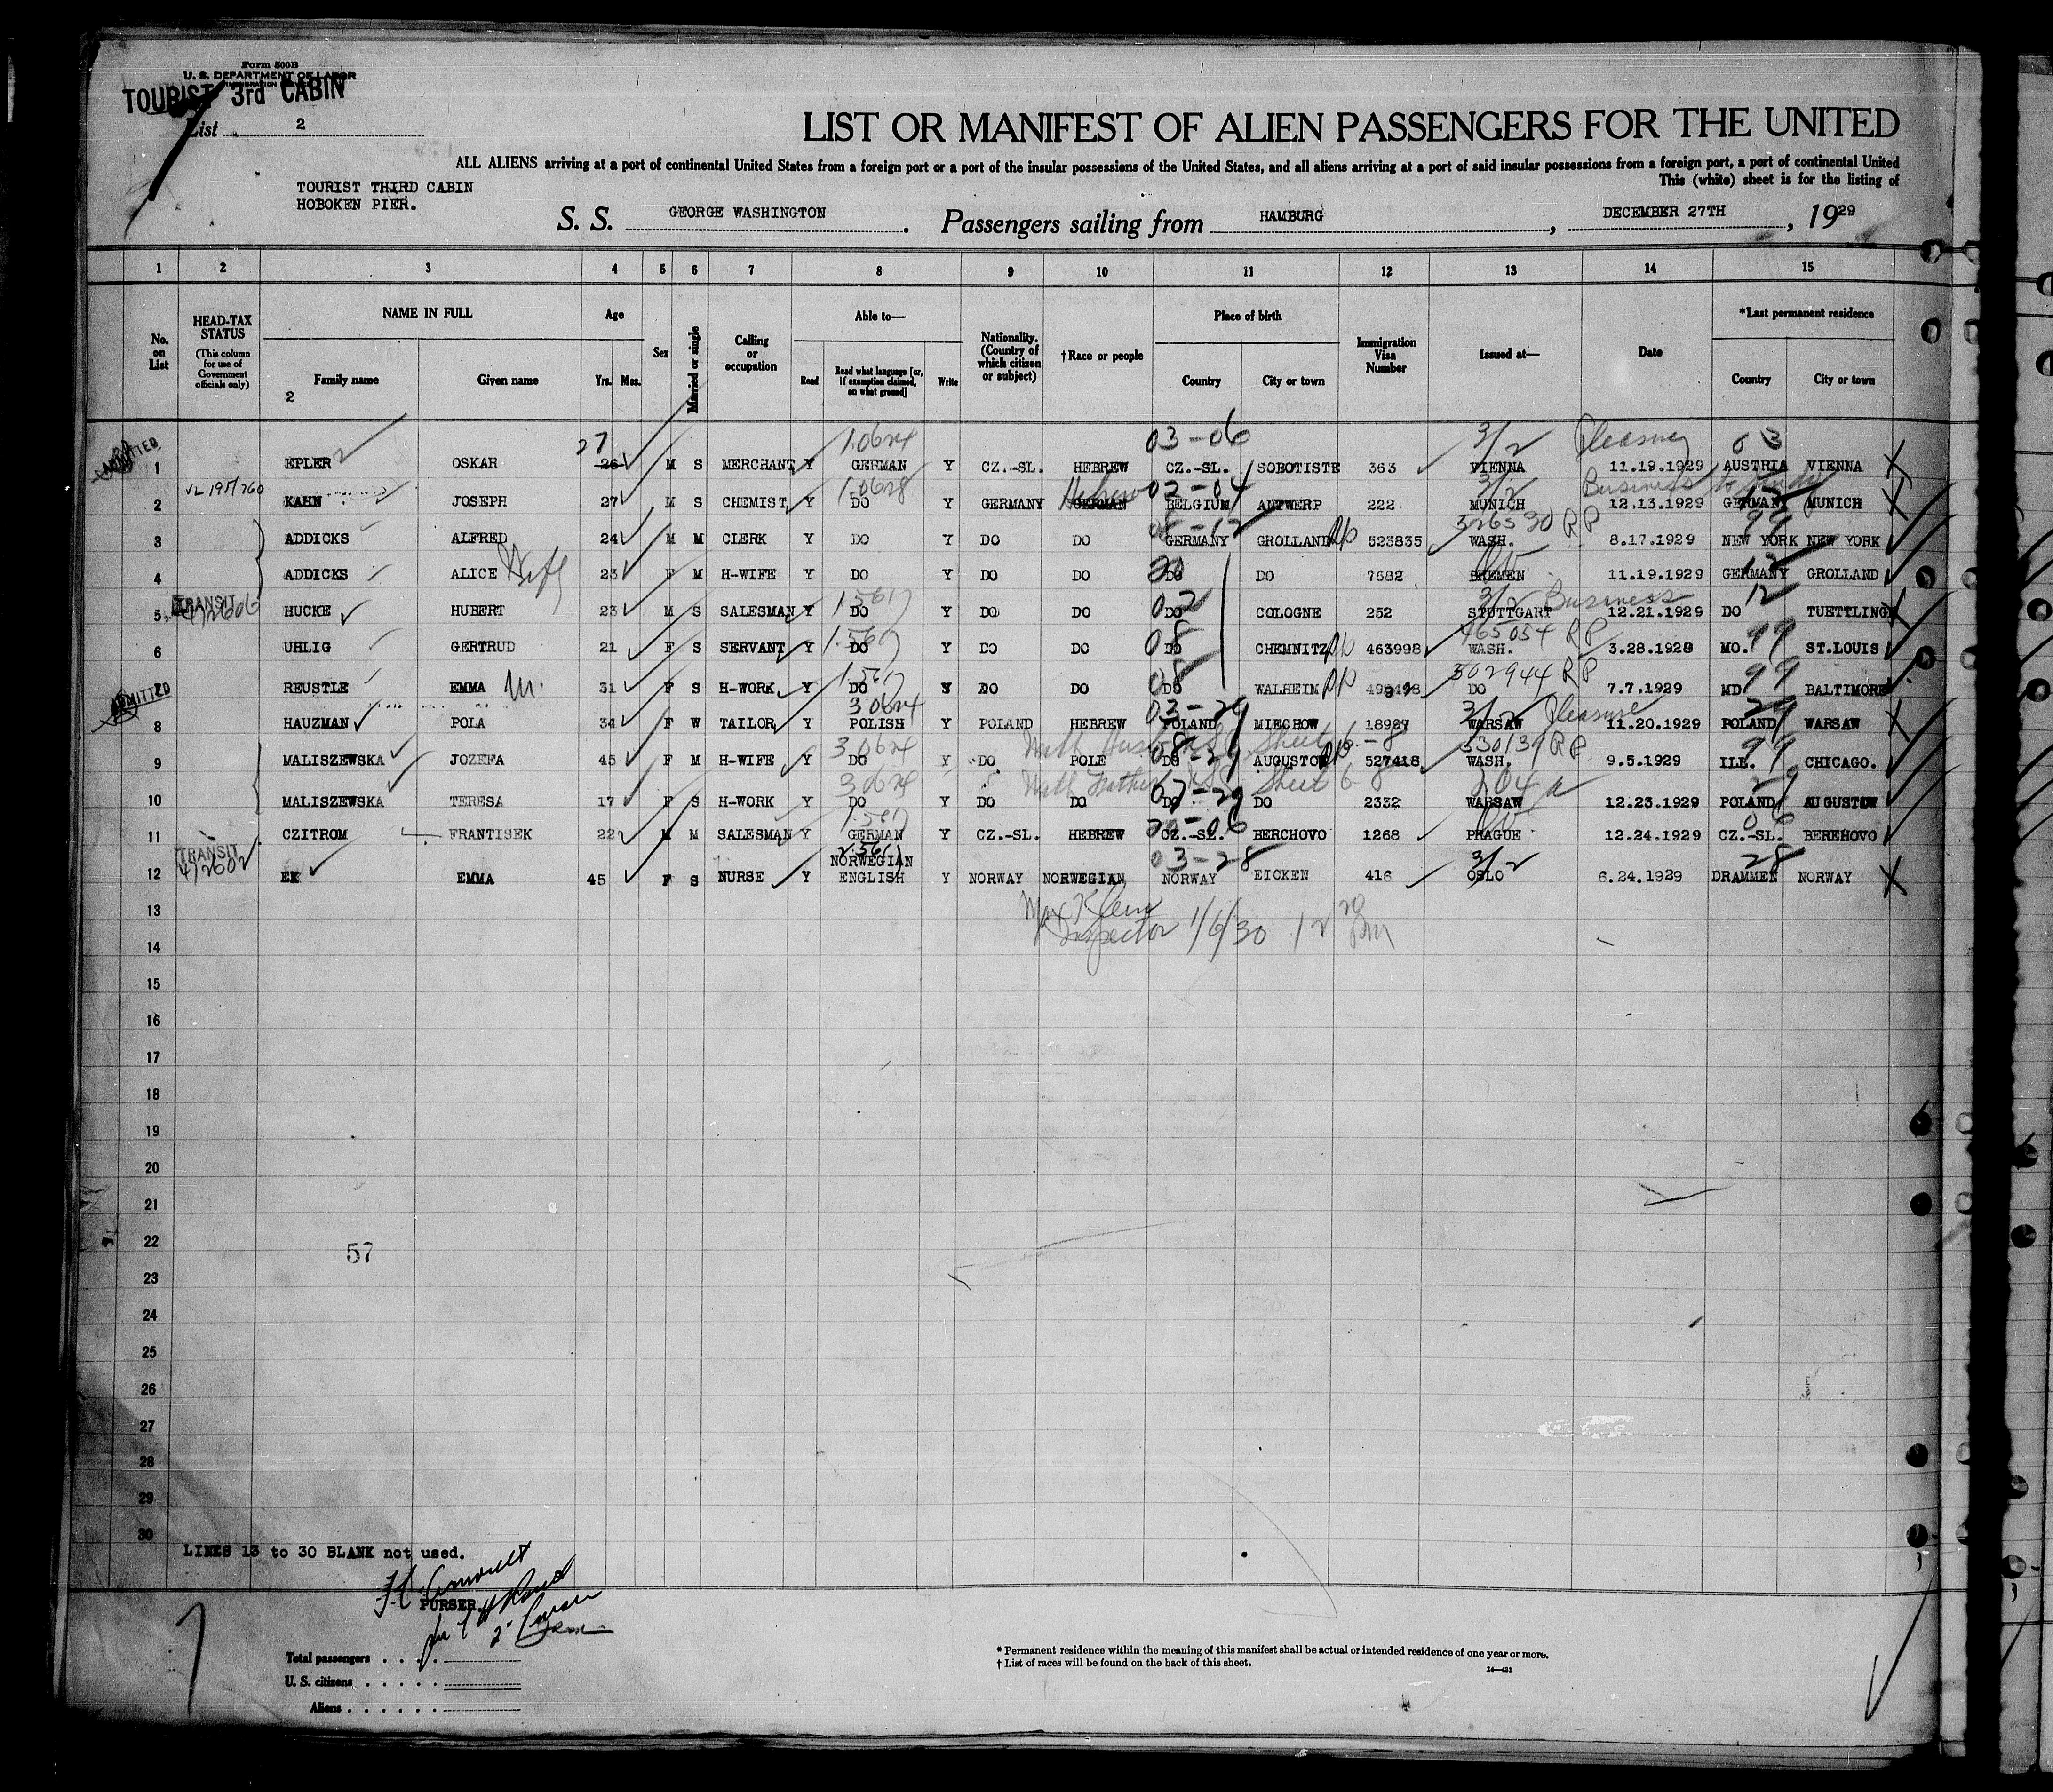 Form 500B
U. S. DEPARTMENT OF LABOR
TOURIST 3rd CABIN
List 2
LIST OR MANIFEST OF ALIEN PASSENGERS FOR THE UNITED
ALL ALIENS arriving at a port of continental United States from a foreign port or a port of the insular possessions of the United States, and all aliens arriving at a port of said insular possessions from a foreign port, a port of continental United
This (white) sheet is for the listing of
TOURIST THIRD CABIN
HOBOKEN PIER.
S. S. GEORGE WASHINGTON . Passengers sailing from HAMBURG , DECEMBER 27TH , 1929
1 2 3 4 5 6 7 8 9 10 11 12 13 14 15
No. on List HEAD-TAX STATUS (This column for use of Government officials only) NAME IN FULL Family name Given name Age Yrs. Mos. Sex Married or single Calling or occupation Able to— Read Read what language [or, if exemption claimed, on what ground] Write Nationality. (Country of which citizen or subject) †Race or people Place of birth Country City or town Immigration Visa Number Issued at— Date *Last permanent residence Country City or town
2
27 1.0624 03-06 3/2 Pleasure 03
ADMITTED 1 EPLER OSKAR 26 M S MERCHANT Y GERMAN Y CZ.-SL. HEBREW CZ.-SL. SOBOTISTE 363 VIENNA 11.19.1929 AUSTRIA VIENNA X
1.0628 Hebrew 02-04 3/2 Business
2 KAHN JOSEPH 27 M S CHEMIST Y DO Y GERMANY GERMAN BELGIUM ANTWERP 222 MUNICH 12.13.1929 GERMANY MUNICH X
326530 RP 99
3 ADDICKS ALFRED 24 M M CLERK Y DO Y DO DO GERMANY GROLLAND RP 523835 WASH. 8.17.1929 NEW YORK NEW YORK
Wife 12
4 ADDICKS ALICE 23 F M H-WIFE Y DO Y DO DO DO DO 7682 BREMEN 11.19.1929 GERMANY GROLLAND
TRANSIT 1.561 02 3/2 Business 12
5 HUCKE HUBERT 23 M S SALESMAN Y DO Y DO DO DO COLOGNE 252 STUTTGART 12.21.1929 DO TUETTLING X
1.561 08 465054 RP 99
6 UHLIG GERTRUD 21 F S SERVANT Y DO Y DO DO DO CHEMNITZ RP 463998 WASH. 3.28.1928 MO. ST.LOUIS
1.561 08 502944 RP 99
7 REUSTLE EMMA M. 31 F S H-WORK Y DO Y DO DO DO WALHEIM RP DO 7.7.1929 MD BALTIMORE
ADMITTED 30624 03-29 3/2 Pleasure 29
8 HAUZMAN POLA 34 F W TAILOR Y POLISH Y POLAND HEBREW POLAND MIECHOW 18927 WARSAW 11.20.1929 POLAND WARSAW X
30624 With Husband Sheet 6-8 330139 RP 99
9 MALISZEWSKA JOZEFA 45 F M H-WIFE Y DO Y DO POLE DO AUGUSTOW RP 527418 WASH. 9.5.1929 ILL. CHICAGO.
30624 With Father Sheet 6 8 29
10 MALISZEWSKA TERESA 17 F S H-WORK Y DO Y DO DO DO DO 2332 WARSAW 12.23.1929 POLAND AUGUSTOW
1.561 06
11 CZITROM FRANTISEK 22 M M SALESMAN Y GERMAN Y CZ.-SL. HEBREW CZ.-SL. BERCHOVO 1268 PRAGUE 12.24.1929 CZ.-SL. BEREHOVO
TRANSIT 2.561 NORWEGIAN 03-28 3/2 28
12 EK EMMA 45 F S NURSE Y ENGLISH Y NORWAY NORWEGIAN NORWAY EICKEN 416 OSLO 6.24.1929 DRAMMEN NORWAY X
13
Max Klein
Inspector 1/6/30
14
15
16
17
18
19
20
21
22
57
23
24
25
26
27
28
29
30
LINES 13 to 30 BLANK not used.
PURSER.
Total passengers
U. S. citizens
Aliens
* Permanent residence within the meaning of this manifest shall be actual or intended residence of one year or more.
† List of races will be found on the back of this sheet.
14—421